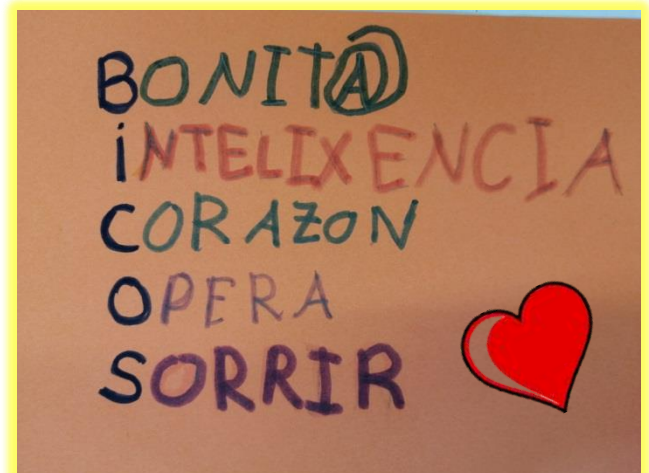 BONIT@
iNTELIXENCIA
CORAZON
OPERA
SORRIR